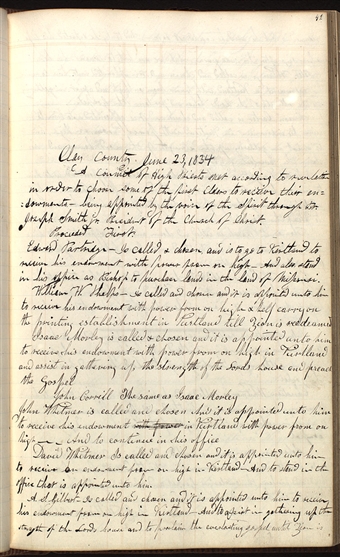 41
Clay County June 23, 1834
A Council of High Priests met according to revelation
in order to choose some of the first Elders to receive their en-
dowments - being appointed by the voice of the Spirit through br
Joseph Smith Jr President of the Church of Christ
Proceeded First
Edward Partridge - Is called & chosen and is to go to Kirtland to
receive his endowment with power from on high - And also stand
in his office as Bishop to purchase lands in the land of Missouri.
William W. Phelps - Is called and chosen and it is appointed unto him
to receive his endowment with power from on high & help carry on
the printing establishment in Kirtland till Zion is redeemed
Isaac Morley is called & chosen and it is appointed unto him
to receive his endowment with power from on high in Kirtland
and assist in gathering up the strength of the Lords house and preach
the Gospel
John Corrill The same as Isaac Morley
John Whitmer is called and chosen and it is appointed unto him
to receive his endowment with power in Kirtland with power from on
high - And to continue in his office
David Whitmer Is called and chosen and it is appointed unto him
to receive his endowment from on high in Kirtland - And to stand in the
office that is appointed unto him
A. S. Gilbert - Is called and chosen and it is appointed unto him to receive
his endowment from on high in Kirtland - And to assist in gathering up the
strength of the Lords house and to proclaim the everlasting gospel until Zion is